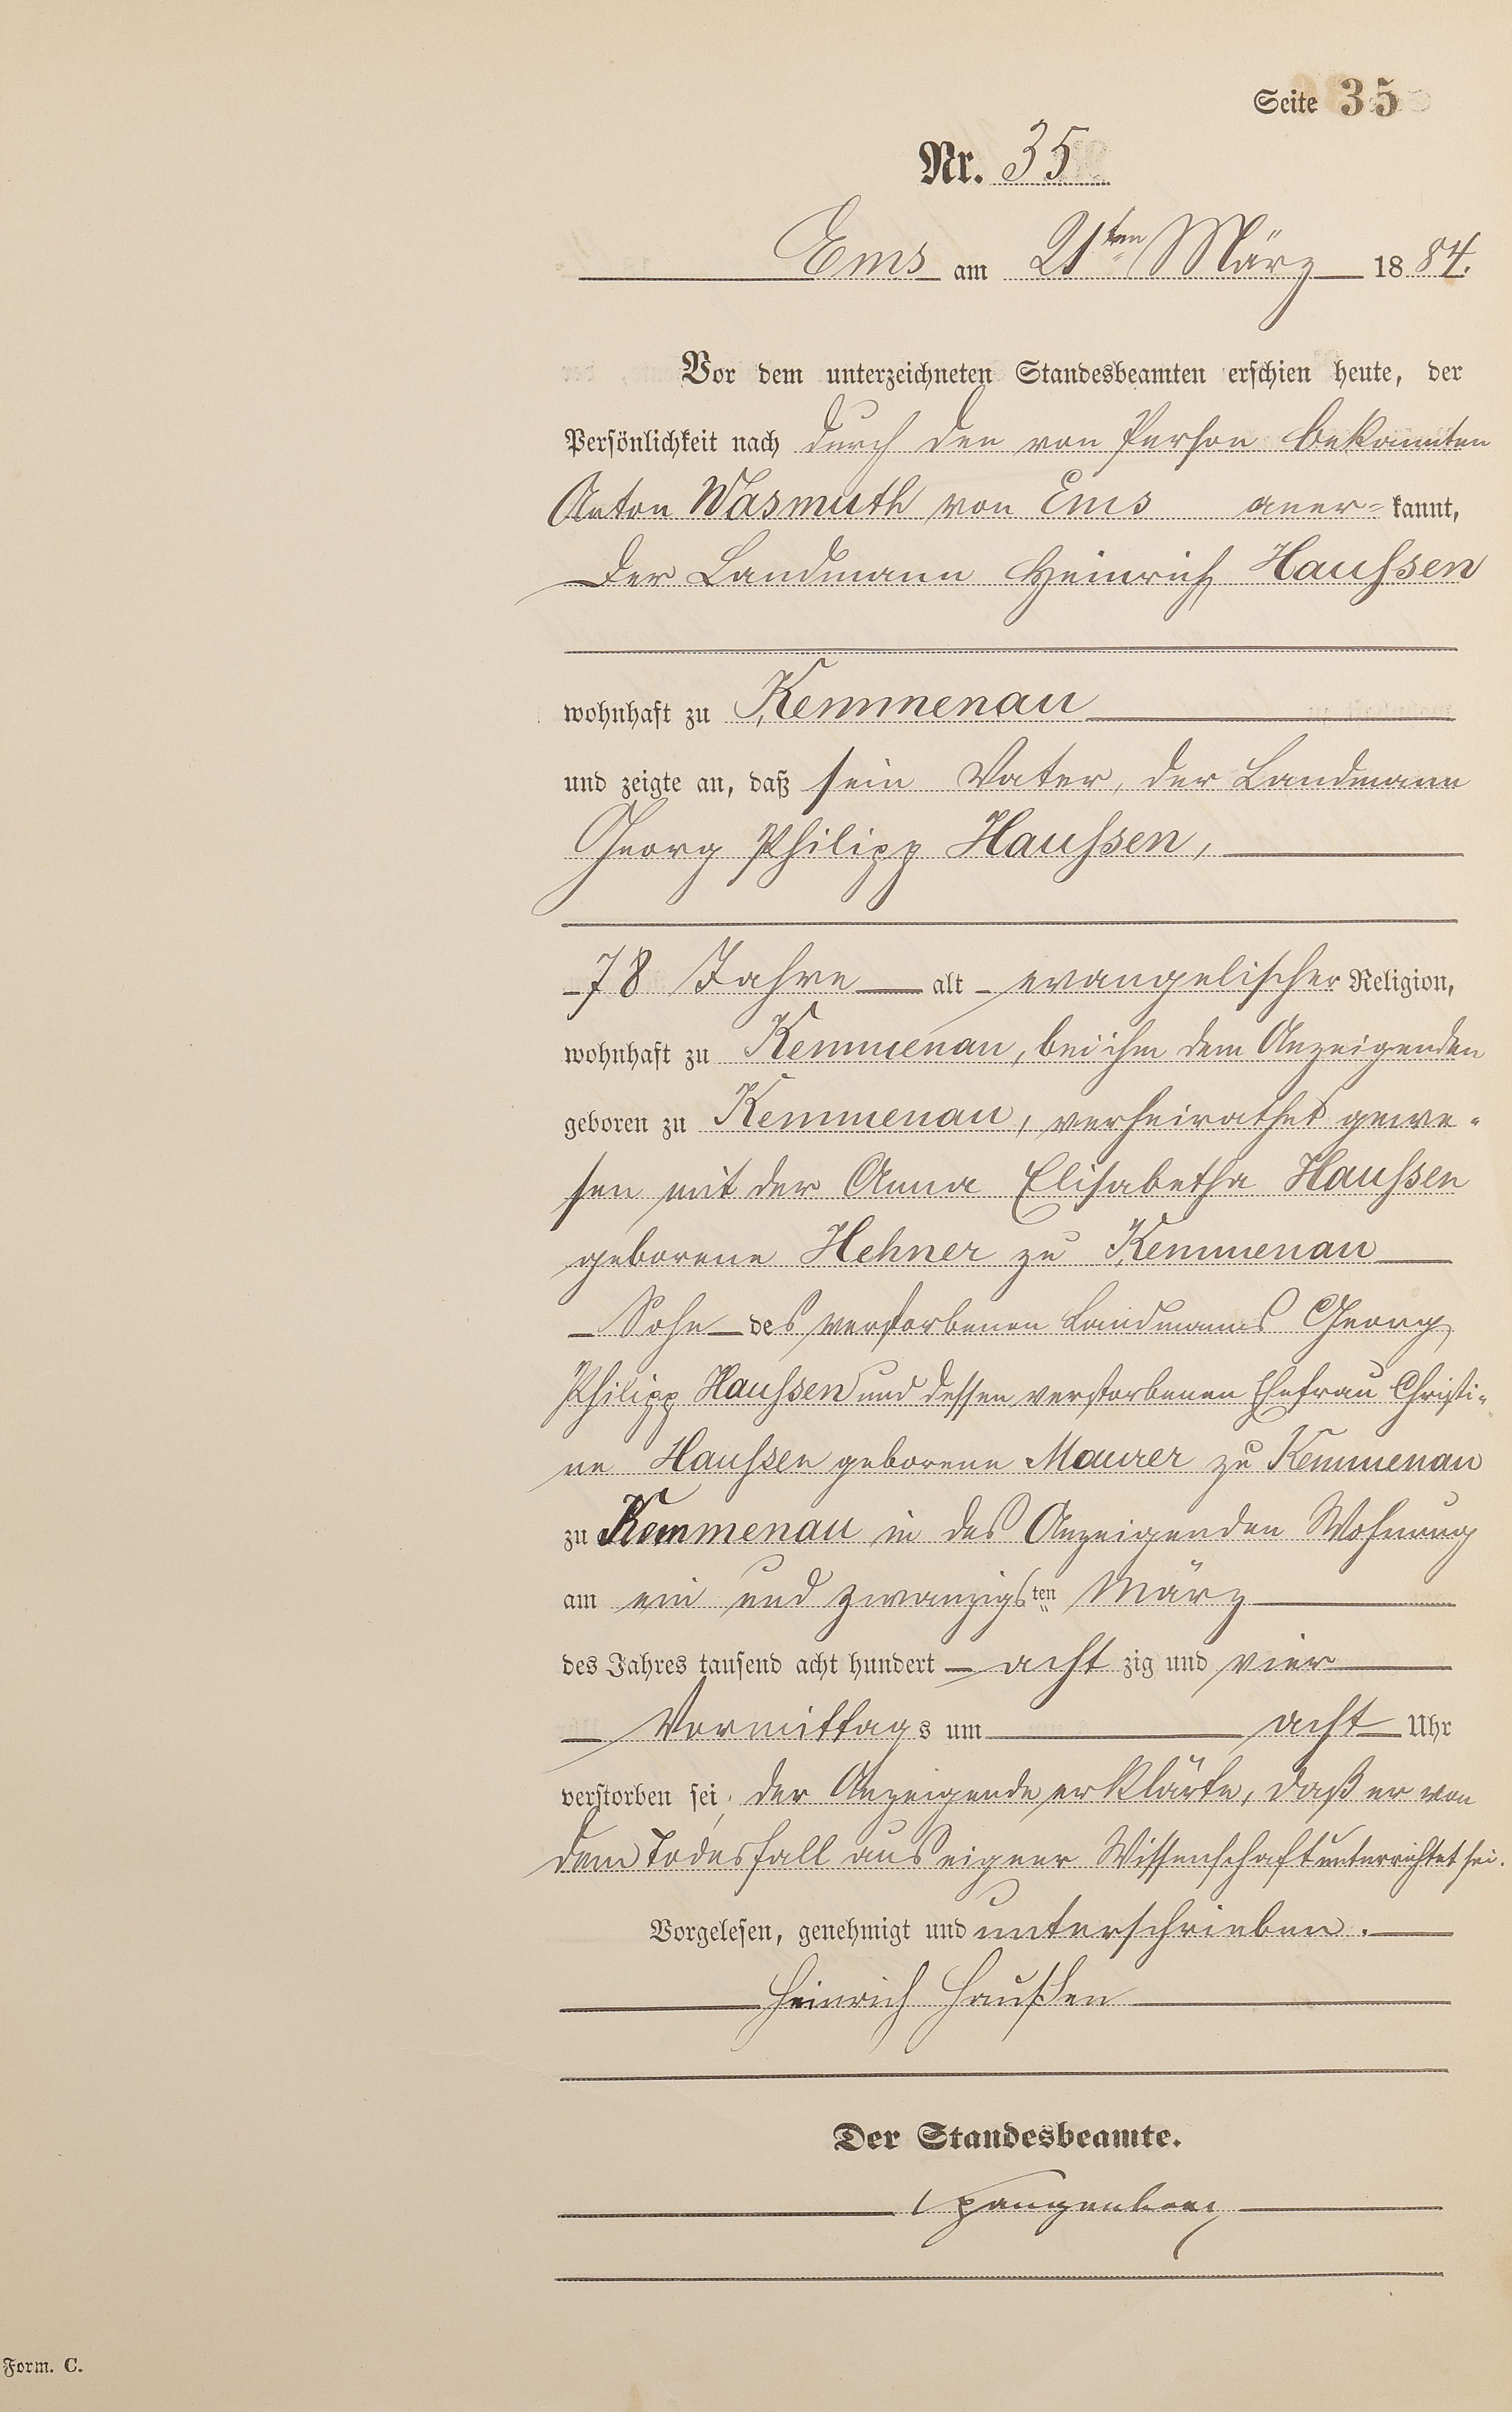 Seite 35
Nr. 35
Ems am 21ten März 1884.
Vor dem unterzeichneten Standesbeamten erschien heute, der
Persönlichkeit nach durch den von Person bekannten
Anton Wasmuth von Ems aner= kannt,
der Landmann Heinrich Haußsen
wohnhaft zu Kemmenau
und zeigte an, daß sein Vater, der Landmann
Georg Philipp Haußsen,
78 Jahre alt evangelischer Religion,
wohnhaft zu Kemmenau, bei ihm dem Anzeigenden
geboren zu Kemmenau, verheirathet gewe-
sen mit der Anna Elisabetha Haußsen
geborene Hehner zu Kemmenau
Sohn des verstorbenen Landmanns Georg
Philipp Haußsen und dessen verstorbenen Ehefrau Christi-
ne Haußsen geborene Maurer zu Kemmenau
zu Kemmenau in des Anzeigenden Wohnung
am ein und zwanzigsten März
des Jahres tausend acht hundert acht zig und vier
Vormittags um acht Uhr
verstorben sei; der Anzeigende erklärte, daß er von
dem Todesfall aus eigner Wissenschaft unterrichtet sei.
Vorgelesen, genehmigt und unterschrieben.
Heinrich Haußen
Der Standesbeamte.
Spangenberg
Form. C.